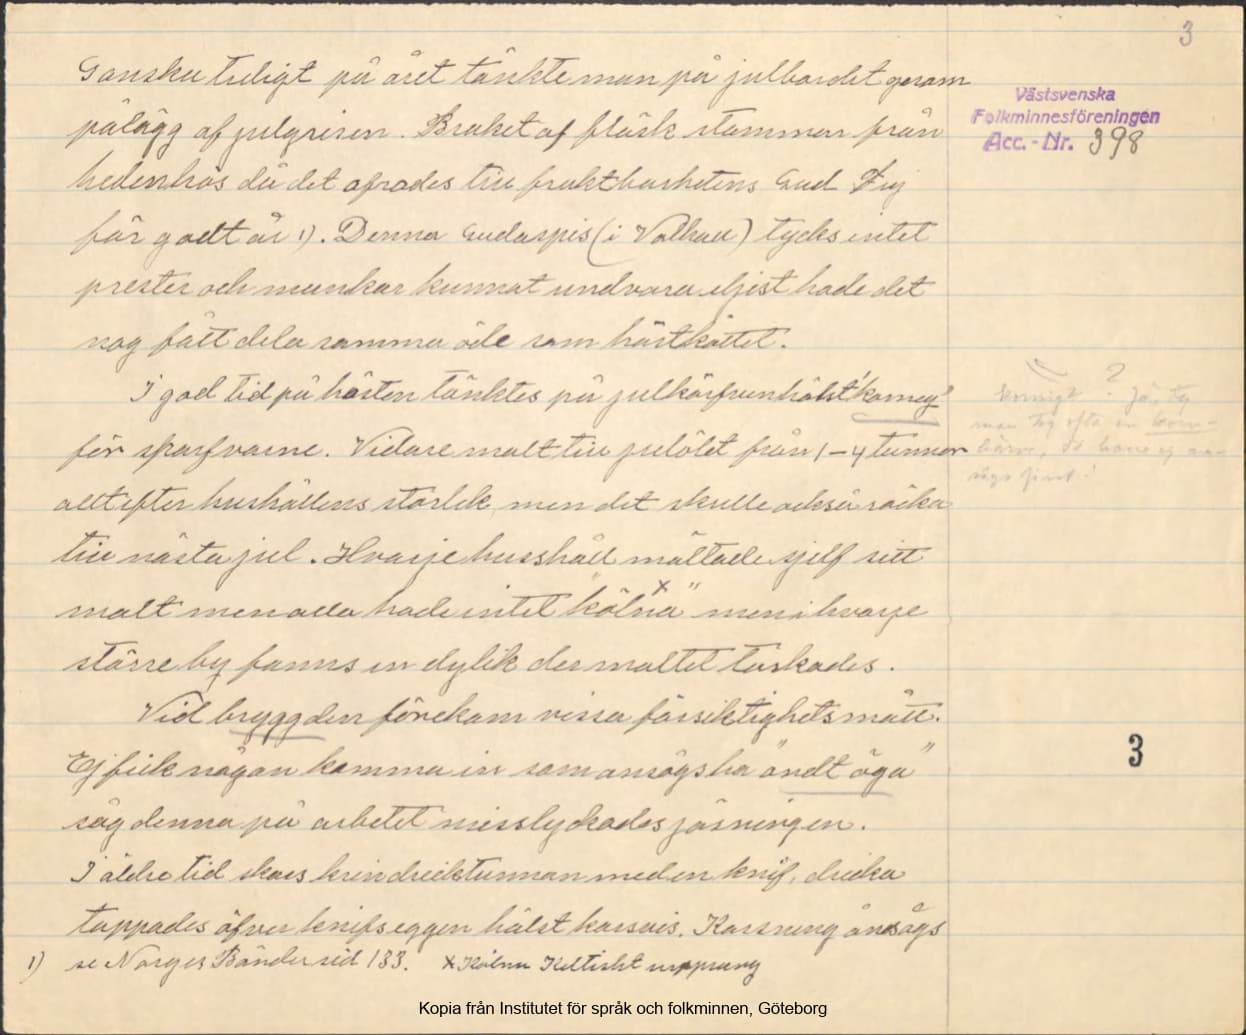 3
Ganska tidigt på året tänkte man på julbordet genom
Västsvenska
Folkminnesföreningen
Acc.-Nr. 398
pålägg af julgrisen. Bruket af fläsk stammar från
hedenhös då det ofrades till fruktbarhetens Gud Frej
för godt år 1). Denna Gudaspis (i Valhall) tycks intet
prester och munkar kunnat undvara eljest hade det
nog fått dela samma öde som hästköttet.
I god tid på hösten tänktes på julkärfven hälst "korneg"
för sparfvarne. Vidare malt till julölet från 1-4 tunnor
allt efter hushållens storlek, men det skulle också räcka
till nästa jul. Hvarje husshåll mältade sjelf sitt
malt men alla hade intet "kölna" x men i hvarje
större by fanns en dylik der maltet torkades.
kornigt ? Ja, ty
man tog ofta en korn-
Vid bryggden förekom vissa försiktighetsmått.
Ej fick någon komma in som ansågs ha "ondt öga"
såg denna på arbetet misslyckades jäsningen.
3
I äldre tid skars kring drecktunnan med en knif, dricka
tappades öfver knifseggen hälst korsvis. Korsning ansågs
1) se Norges Bönder sid 133. x Kölna Keltiskt ursprung
Kopia från Institutet för språk och folkminnen, Göteborg